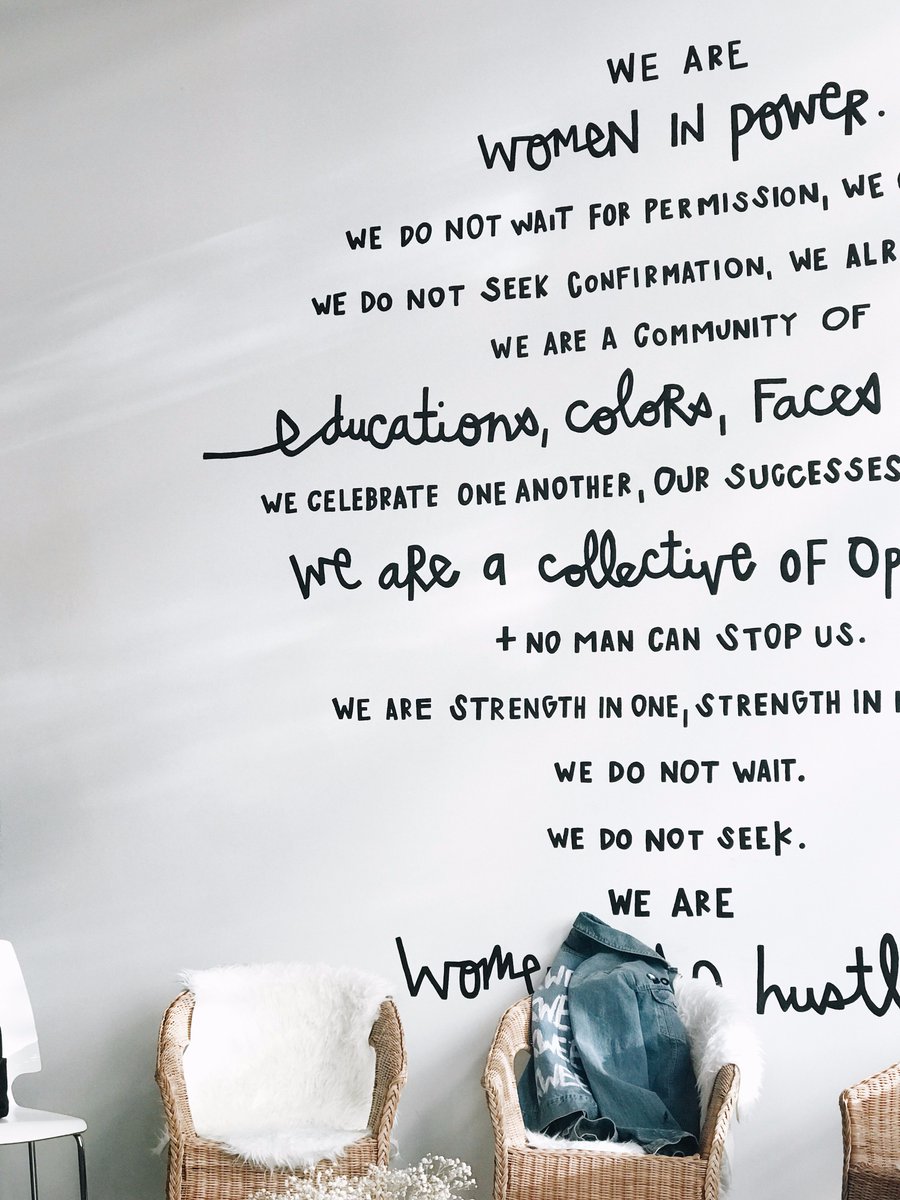 WE ARE
WOMEN IN POWER.
WE DO NOT WAIT FOR PERMISSION, WE
WE DO NOT SEEK CONFIRMATION, WE ALR
WE ARE A COMMUNITY OF
educations, colors, Faces
WE CELEBRATE ONE ANOTHER, OUR SUCCESSES
we are a collective of Op
+ NO MAN CAN STOP US.
WE ARE STRENGTH IN ONE, STRENGTH IN
WE DO NOT WAIT.
WE DO NOT SEEK.
WE ARE
wome hustl
WE
WE
WE
WE